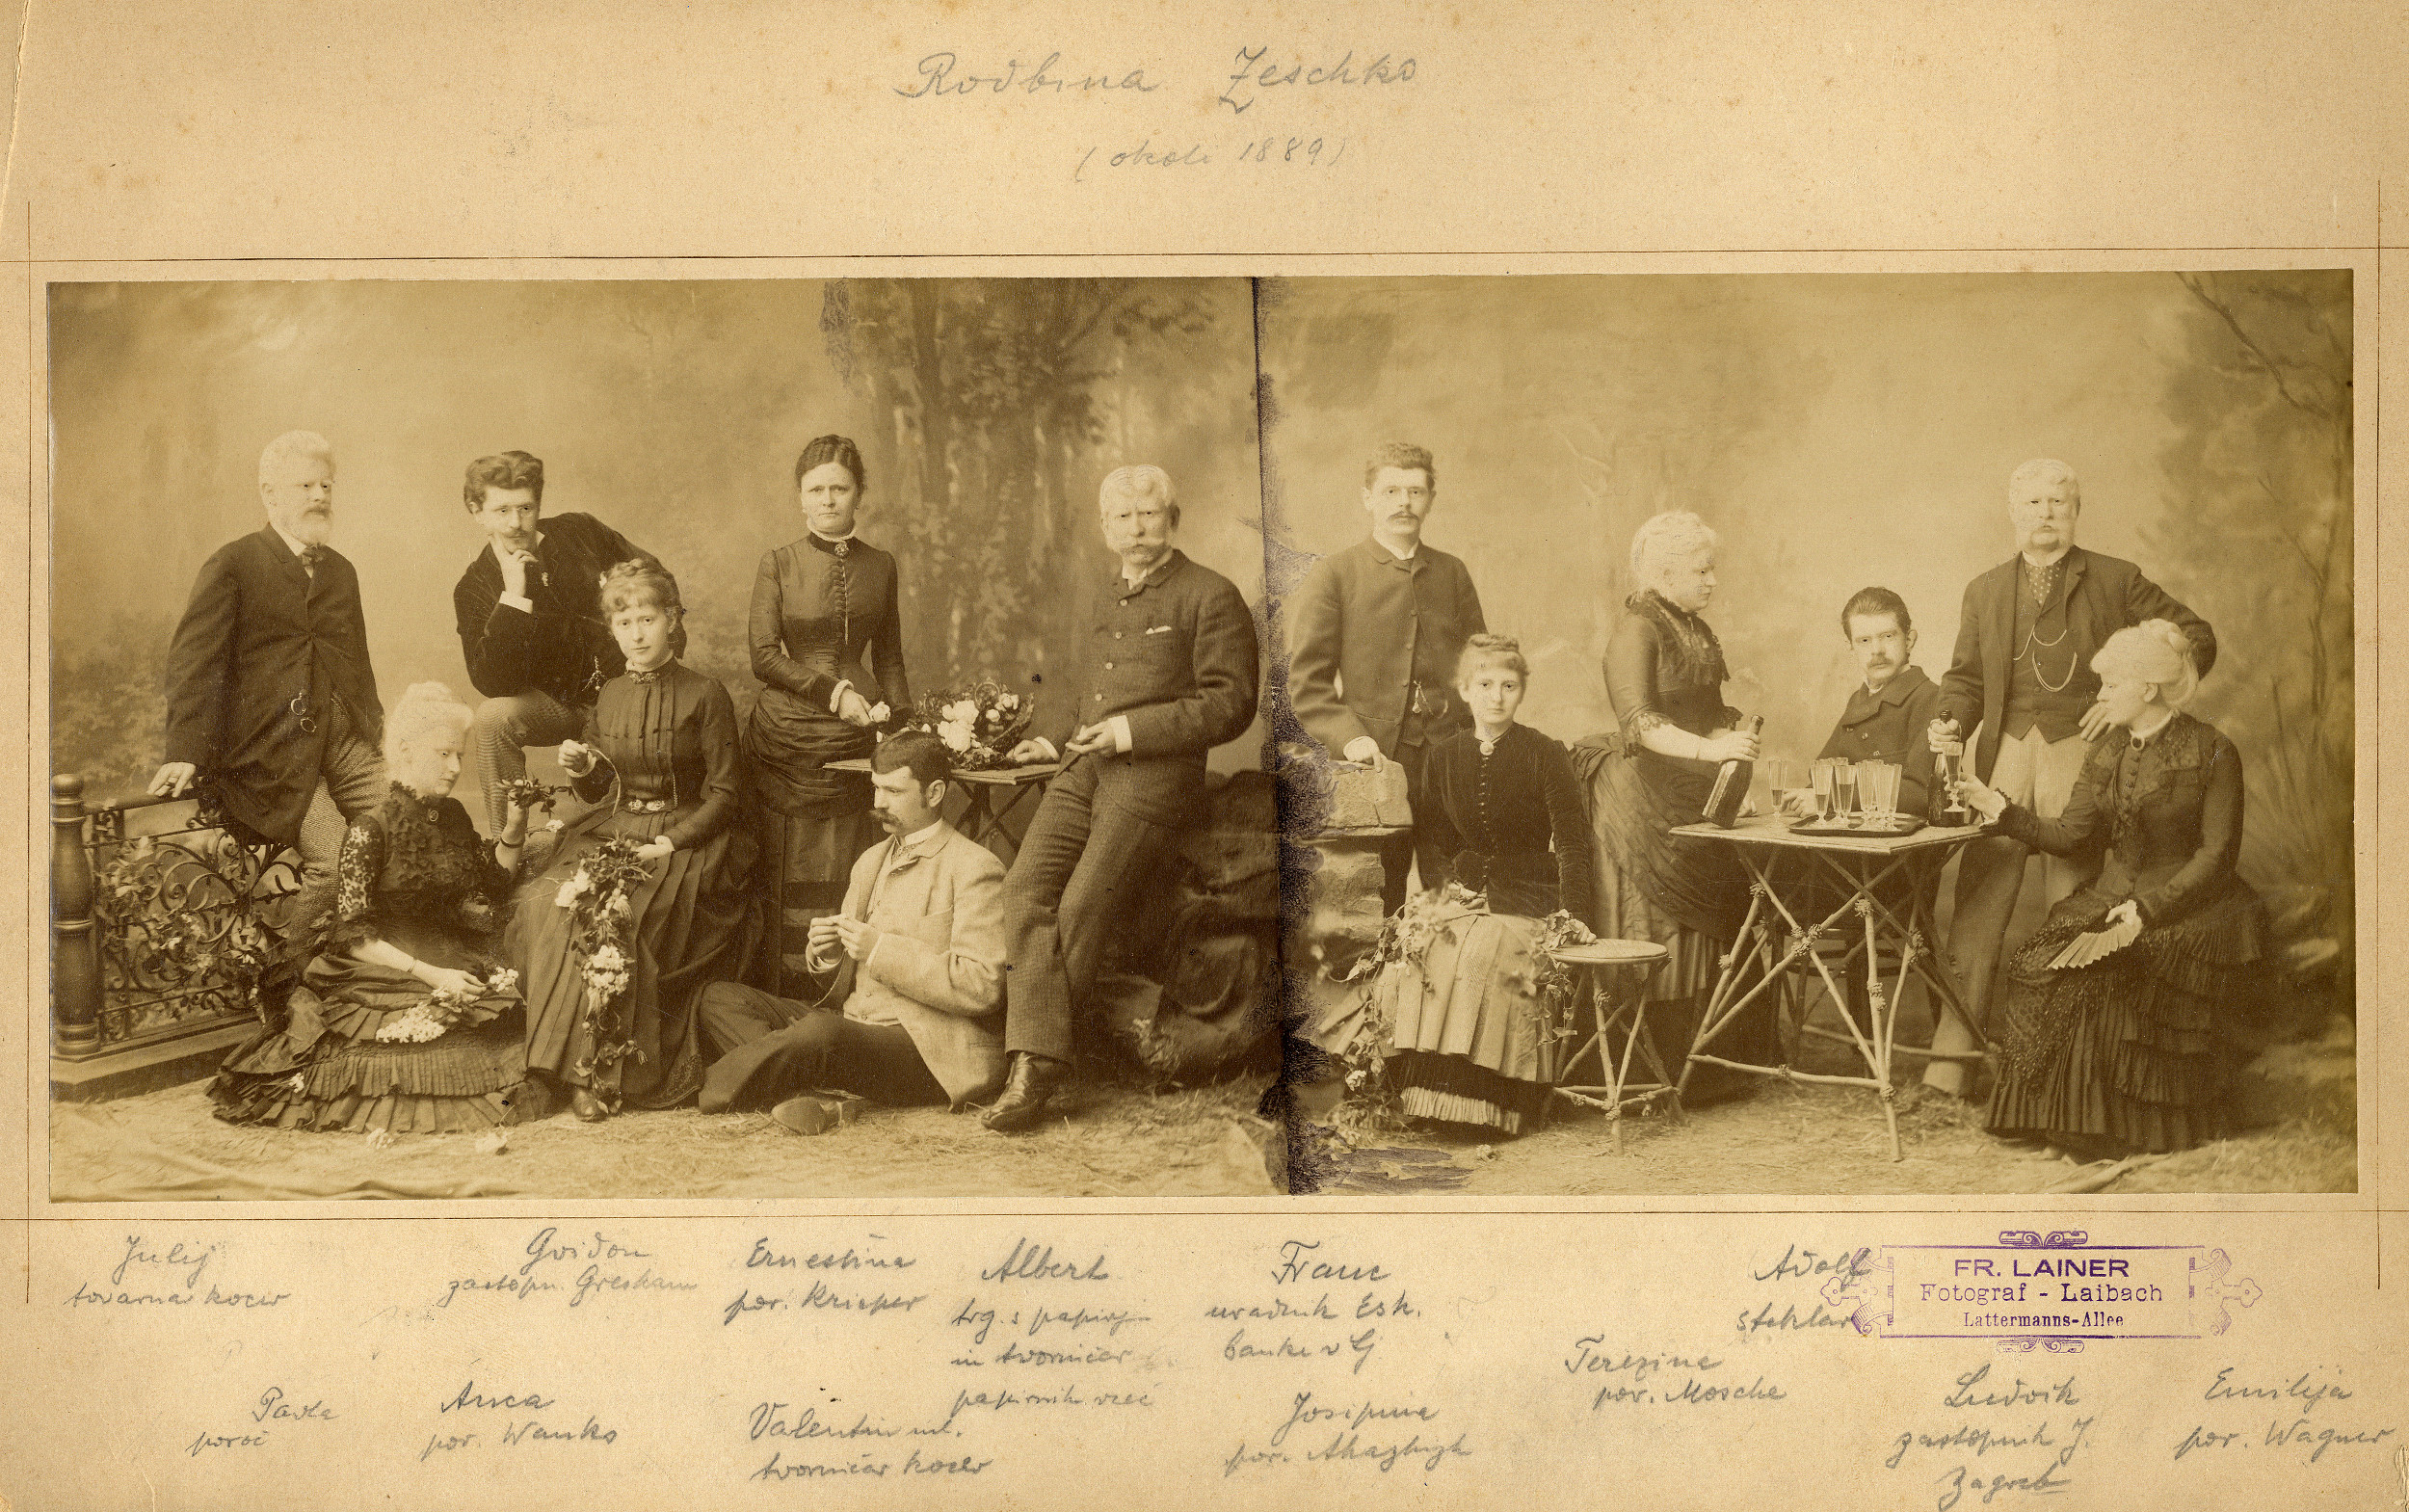 Rodbina Zeschko
(okoli 1889)
Julij
tovarna kocev
Gvidon
zastopn. Gresham
Ernestina
por. Krisper
Albert
trg. s papirjem
in tvorničar
papirnih vreč
Franc
uradnik Esk.
banke v Lj
Adolf
steklar
FR. LAINER
Fotograf - Laibach
Lattermanns-Allee
Pavla
poroč
Anca
por. Wanko
Valentin ml.
tvorničar kocev
Josipina
por.
Terezina
por. Mosche
Ludvik
zastopnik J.
Zagreb
Emilija
por. Wagner